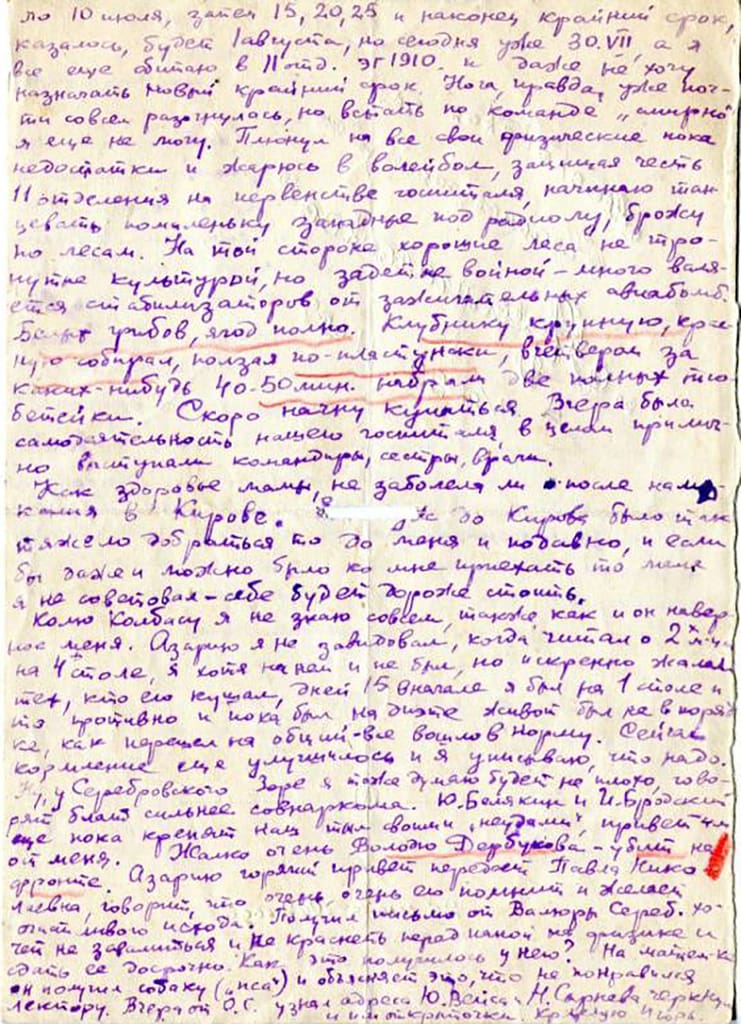 ло 10 июля, затем 15, 20, 25 и наконец крайний срок,
казалось, будет 1 августа, но сегодня уже 30.VII, а я
все еще обитаю в 11 отд. ЭГ 1910. и даже не хочу
назначать новый крайний срок. Нога, правда, уже поч-
ти совсем разогнулась, но встать по команде „смирно“
я еще не могу. Плюнул на все свои физические пока
недостатки и жарюсь в волейбол, защищая честь
11 отделения на первенстве госпиталя, начинаю тан-
цевать помаленьку западные под радиолу, брожу
по лесам. На той стороне хорошие леса не тро-
нутые культурой, но задетые войной – много валя-
ется стабилизаторов от зажигательных авиабомб.
Белых грибов, ягод полно. Клубнику крупную, крас-
ную собирал, ползая по-пластунски, вчетвером за
каких-нибудь 40-50 мин. набрали две полных тю-
бетейки. Скоро начну купаться. Вчера была
самодеятельность нашего госпиталя, в целом прилич-
но выступали командиры, сестры, врачи.
Как здоровье мамы, не заболела ли после
в Кирове. до Кирова было так
тяжело добраться то до меня и подавно, и если
бы даже и можно было ко мне приехать то меня
я не советовал – себе будет дороже стоить.
Колю Колбасу я не знаю совсем, также как и он навер-
ное меня. Азарию я не завидовал, когда читал о 2х
на 4 столе, я хотя на нем и не был, но искренно жалел
тех, кто его кушал, дней 15 вначале я был на 1 столе и
то противно и пока был на диэте живот был не в поряд
ке, как перешел на общий – все вошло в норму. Сейчас
кормление еще улучшилось и я уписываю, что надо.
Ну, у Серебровского Зоре я тоже думаю будет не плохо, гово-
рят блат сильнее совнаркома. Ю. Белякин и И. Бродский
еще пока крепят наш тыл своими привет им
от меня. Жалко очень Володю Дербукова – убит на
фронте. Азарию горячий привет передает Павла Нико
лаевна, говорит, что очень, очень его помнит и желает
счастливого исхода. Получил письмо от Валюры Сереб. хо-
чет не завалиться и не краснеть перед папой по физике и
сдать ее досрочно. Как это получилось у него? На
он получил собаку („пса“) и объясняет это, что не понравился
лектору. Вчера от О.С. узнал адреса Ю. Вейса и
и им открыточки Целую Игорь.